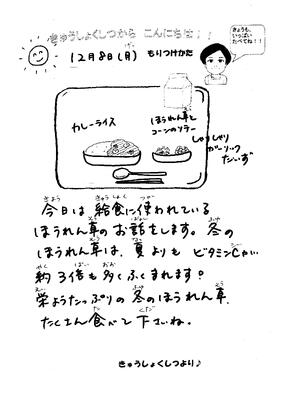 きゅうしょくしつから こんにちは♪
きょうも、
いっぱい
たべてね!!
12月8日(月) もりつけかた
カレーライス
ほうれん草と
コーンのソテー
じゃりじゃり
ガーリック
だいず
今日は 給食に使われている
ほうれん草のお話をします。冬の
ほうれん草は、夏よりも ビタミンCが
約3倍も多くふくまれます?
栄ようたっぷりの冬のほうれん草、
たくさん食べて下さいね。
きゅうしょくしつより♪